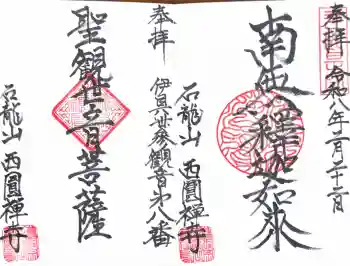 奉拝 令和八年二月二十二日
南無釋迦如来
石龍山 西圓禅寺
奉拝
伊具世参観音第八番
聖観世音菩薩
石龍山 西圓禅寺